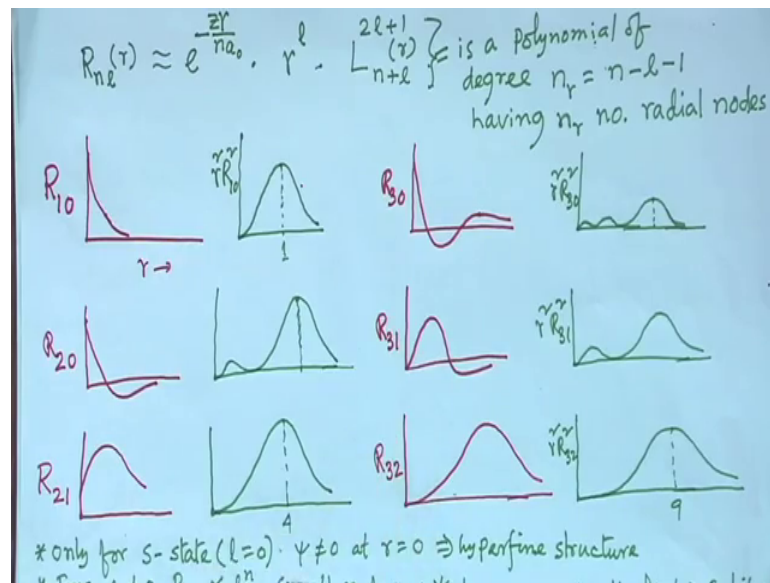 Rnl(r) ≈ e^(-zr/na₀) . r^l . L_{n+l}^{2l+1}(r) } = is a polynomial of
degree n_r = n-l-1
having n_r no. radial nodes
R10
r²R²10
1
R30
r²R²30
r →
R20
R31
r²R²31
R21
4
R32
r²R²32
9
* only for s-state (l=0). Ψ ≠ 0 at r=0 ⇒ hyperfine structure